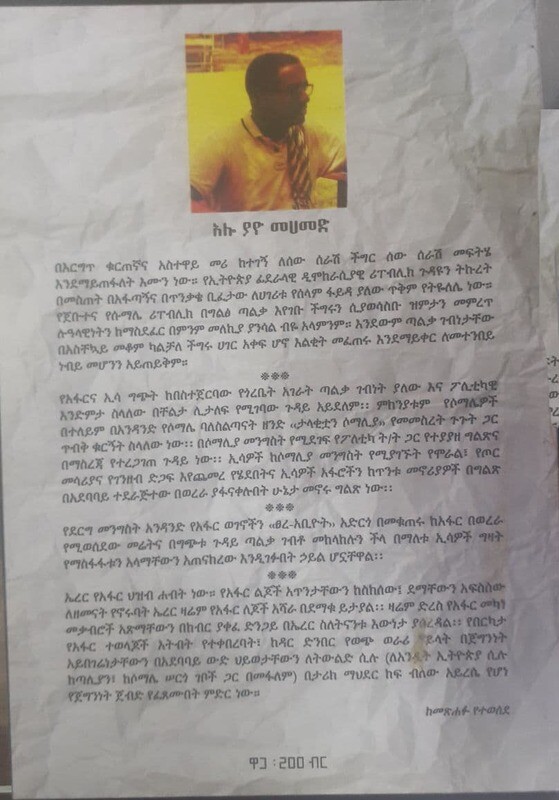 አሎ ያዮ መሀመድ
በእርግጥ ቁርጠኛና አስተዋይ መሪ ከተገኝ ለሰው ሰራሽ ችግር ሰው ሰራሽ መፍትሄ
እንደማይጠፋለት እሙን ነው። የኢትዮጵያ ፌደራላዊ ዲሞክራሲያዊ ሪፐብሊክ ጉዳዩን ትኩረት
በመስጠት በአፋጣኝና በጥንቃቄ ቢፈታው ለሀገሪቱ የሰላም ፋይዳ ያለው ጥቅም የትዬለሌ ነው።
የጀቡተና የሱማሌ ሪፐብሊክ በግልፅ ጣልቃ እየገቡ ችግሩን ሲያወሳስቡ ዝምታን መምረጥ
ሉዓላዊነትን ከማስደፈር በምንም መለኪያ ያንሳል ብዬ አላምንም። እንደውም ጣልቃ ገብነታቸው
በአስቸኳይ መቆም ካልቻለ ችግሩ ሀገር አቀፍ ሆኖ እልቂት መፈጠሩ እንደማይቀር ለመተንበይ
ነብይ መሆንን አይጠይቅም።
***
የአፋርና ኢሳ ግጭት ከበስተጀርባው የጎረቤት አገራት ጣልቃ ገብነት ያለው እና ፖለቲካዊ
እንድምታ ስላለው በቸልታ ሊታለፍ የሚገባው ጉዳይ አይደለም፡፡ ምክንያቱም የሶማሌዎች
በተለይም በአንዳንድ የሶማሌ ባለስልጣናት ዘንድ ‹‹ታላቂቷን ሶማሊያ›› የመመስረት ጉጉት ጋር
ጥብቅ ቁርኝት ስላለው ነው፡፡ በሶማሊያ መንግስት የሚደገፍ የፖለቲካ ት/ት ጋር የተያያዘ ግልጽና
በማስረጃ የተረጋገጠ ጉዳይ ነው፡፡ ኢሳዎች ከሶማሊያ መንግስት የሚያገኙት የሞራል፣ የጦር
መሳሪያና የገንዘብ ድጋፍ እየጨመረ የሄደበትና ኢሳዎች አፋሮችን ከጥንቱ መኖሪያዎች በግልጽ
በአደባባይ ተደራጅተው በወረራ ያፋናቀሉበት ሁኔታ መኖሩ ግልጽ ነው፡፡
***
የደርግ መንግስት አንዳንድ የአፋር ወገኖችን ‹‹ፀረ-አቢዮት›› አድርጎ በመቁጠሩ ከአፋር በወረራ
የሚወሰደው መሬትና በግጭቱ ጉዳይ ጣልቃ ገብቶ መከላከሉን ችላ በማለቱ ኢሳዎች ግዛት
የማስፋፋቱን አላማቸውን አጠናክረው እንዲገፉበት ኃይል ሆኗቸዋል፡፡
***
ኤረር የአፋር ህዝብ ሐብት ነው። የአፋር ልጆች አጥንታቸውን ከስክሰው፤ ደማቸውን አፍስሰው
ለዘመናት የኖሩባት ኤረር ዛሬም የአፋር ለጆች አሻራ በደማቁ ይታያል፡፡ ዛሬም ድረስ የአፋር መካነ
መቃብሮች አጽማቸውን በክብር ያቀፈ ድንጋይ በኤረር ስለትናንቱ እውነታ ያስረዳል፡፡ የበርካታ
የአፋር ተወላጆች እትብት የተቀበረባት፣ ከዳር ድንበር የወጭ ወራሪ ኃይላት በጀግንነት
አይበገሬነታቸውን በአደባባይ ውድ ህይወታቸውን ለትውልድ ሲሉ (ለአንዲት ኢትዮጵያ ሲሉ
ከጣሊያን፣ ከሶማሌ ሠርጎ ገቦች ጋር በመፋለም) በታሪክ ማህደር ከፍ ብለው አይረሴ የሆነ
የጀግንነት ጀብድ የፈጸሙበት ምድር ነው።
ከመጽሐፉ የተወሰደ
ዋጋ ፡ 200 ብር